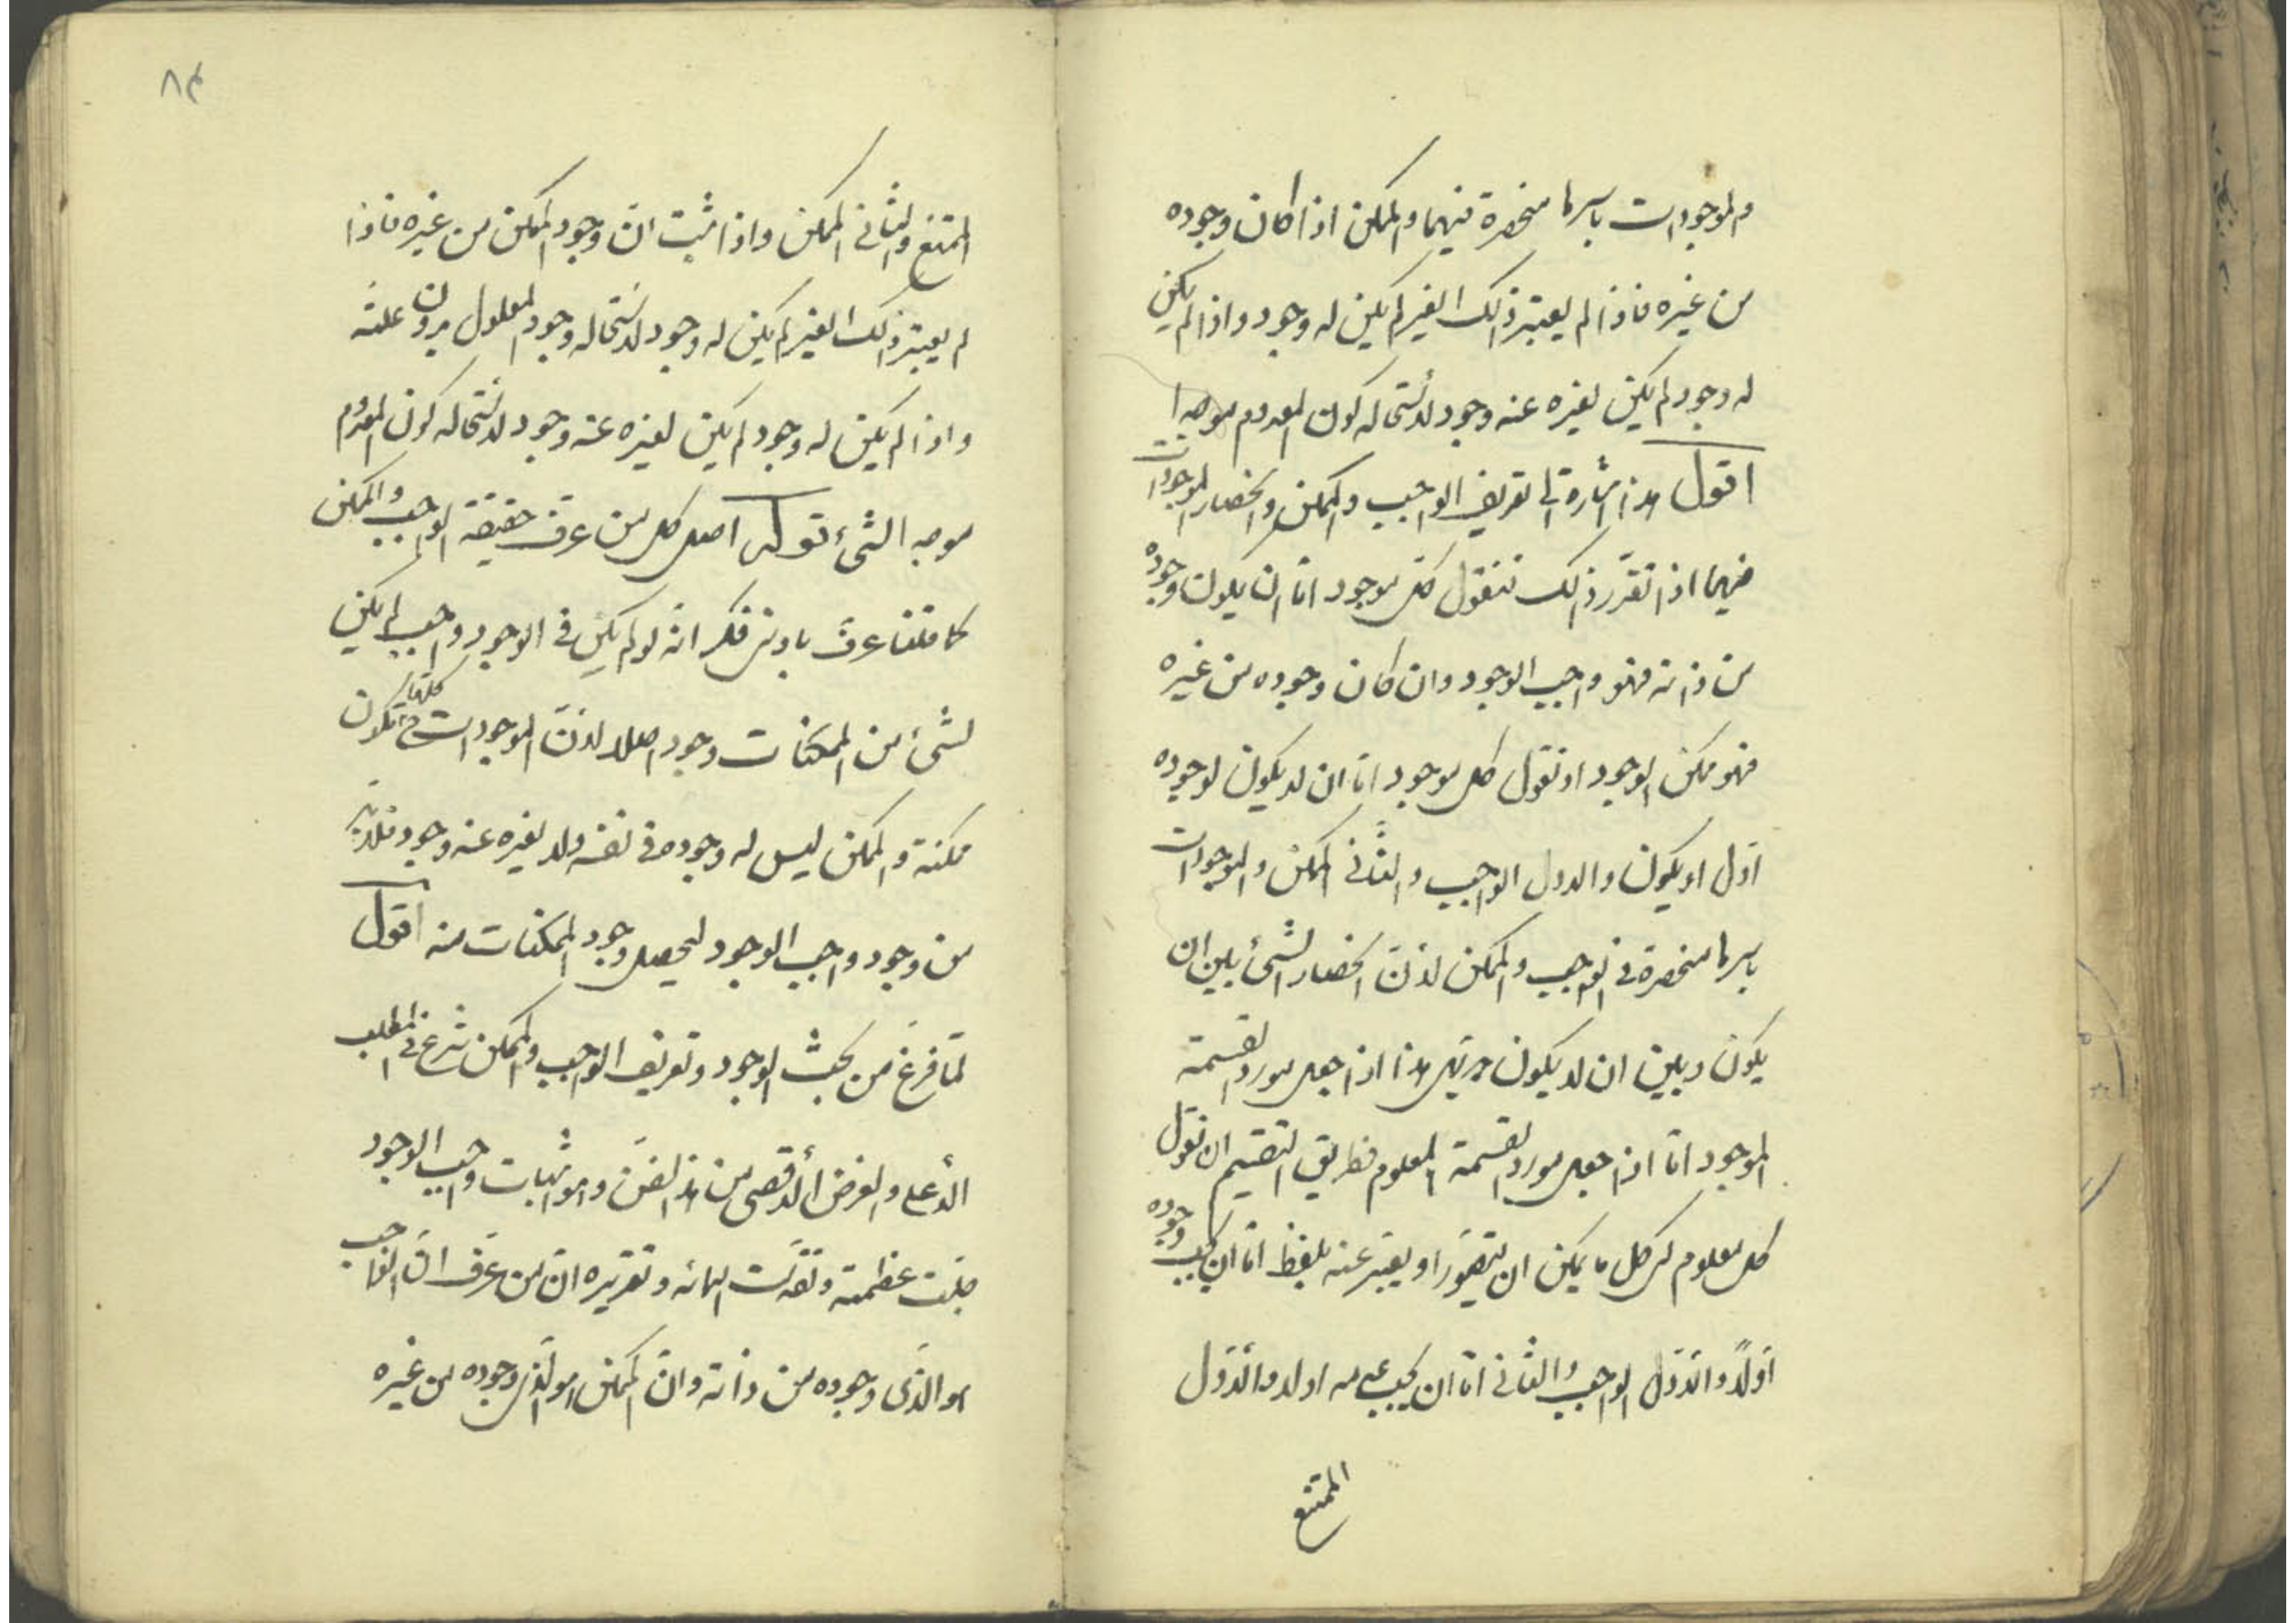 والموجودات باسرها منحصرة فيهما والممكن اذا كان وجوده
من غيره فاذا لم يعتبر ذلك الغير لم يكن له وجود واذا لم يكن
له وجود لم يكن لغيره عنه وجود لاستحالة كون المعدوم موجدا
اقول هذا اشارة الى تعريف الواجب والممكن وانحصار الموجودات
فيهما اذا تقرر ذلك فنقول كل موجود اما ان يكون وجوده
من ذاته فهو واجب الوجود وان كان وجوده من غيره
فهو ممكن الوجود او نقول كل موجود اما ان لا يكون لوجوده
اول او يكون والاول الواجب والثانى الممكن والموجودات
باسرها منحصرة فى الواجب والممكن لانّ انحصار الشئ بين ان
يكون وبين ان لا يكون هذا اذا جعل مورد القسمة
الموجود امّا اذا جعل مورد القسمة المعلوم فطريق التقسيم ان نقول
كل معلوم اى كل ما يمكن ان يتصوّر او يعبّر عنه بلفظ امّا ان يجب وجوده
اوّلاً والاوّل الواجب والثانى امّا ان يجب عدمه اولا والاوّل
الممتنع
٨٤
الممتنع والثانى الممكن واذا ثبت انّ وجود الممكن من غيره فاذا
لم يعتبر ذلك الغير لم يكن له وجود لاستحالة وجود المعلول بدون علته
واذا لم يكن له وجود لم يكن لغيره عنه وجود لاستحالة كون المعدوم
موجد الشئ قوله اصل كل من عرف حقيقة الواجب والممكن
كما قلنا عرف بادنى فكر انه لو لم يكن فى الوجود واجب لم يكن
لشئ من الممكنات وجود اصلا لانّ الموجودات ح كلها تكون
ممكنة والممكن ليس له وجود من نفسه ولا لغيره عنه وجود فلابد
من وجود واجب الوجود ليحصل وجود الممكنات منه اقول
لمّا فرغ من بحث الوجود وتعريف الواجب والممكن شرع فى المطلب
الأعلى والغرض الأقصى من هذا الفنّ وهو اثبات واجب الوجود
جلت عظمته وتقدّست اسمائه وتقريره انّ من عرف انّ الواجب
هو الذى وجوده من ذاته وانّ الممكن هو الذى وجوده من غيره